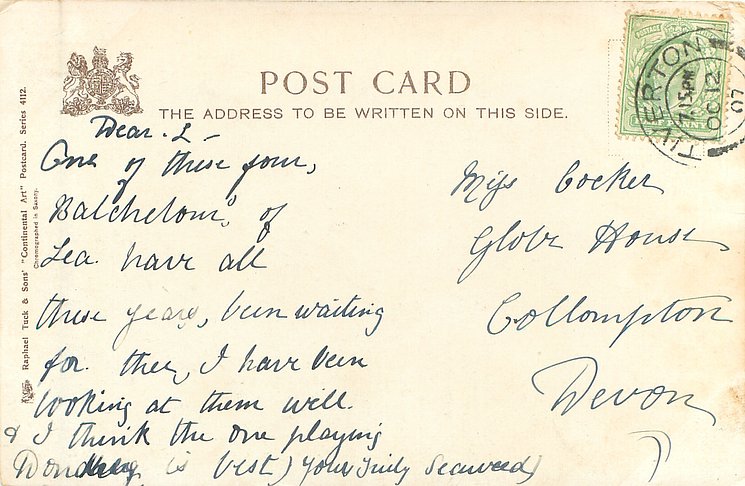 POST CARD
THE ADDRESS TO BE WRITTEN ON THIS SIDE.
Raphael Tuck & Sons' "Continental Art" Postcard. Series 4112.
Chromographed in Saxony.
TIVERTON
7.15PM
OC 12
07
Dear. L –
One of these four,
Batchelours, of
Lea. have all
these years, been waiting
for. thee, I have been
looking at them well.
& I think the one playing
is best) Yours truly Seaweed
Miss Cocker
Globe House
Collompton
Devon